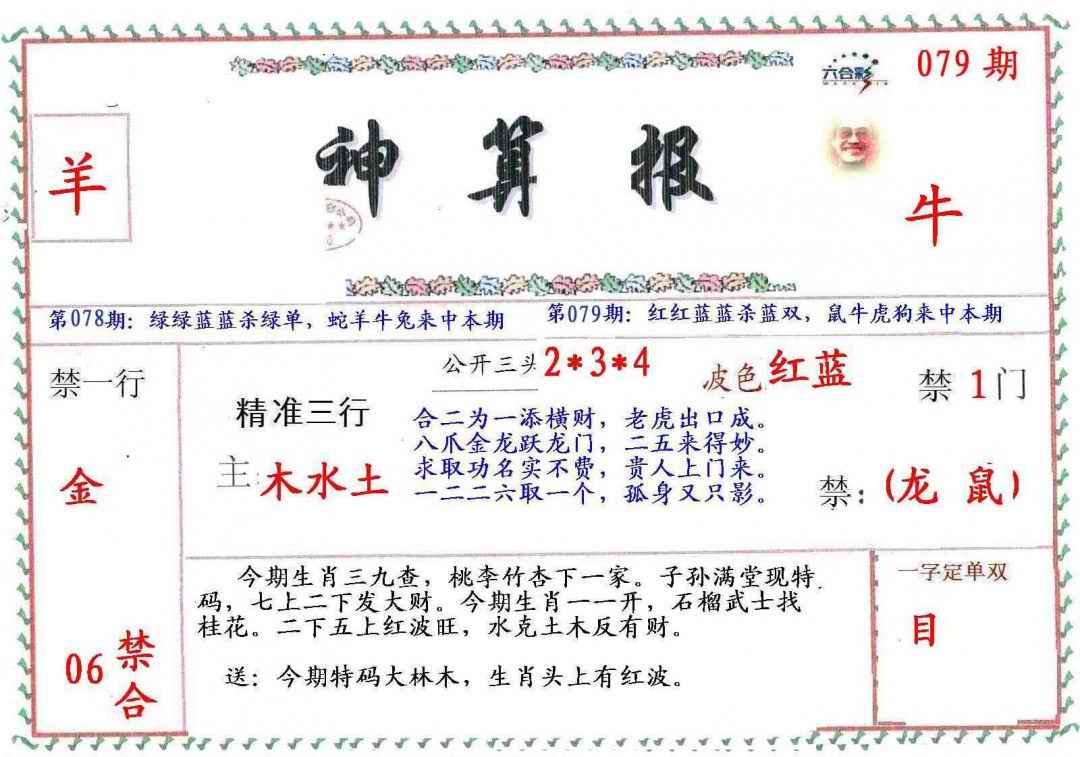 六合彩
079 期
神算报
羊
牛
第078期：绿绿蓝蓝杀绿单，蛇羊牛兔来中本期
第079期：红红蓝蓝杀蓝双，鼠牛虎狗来中本期
禁一行
金
06 禁合
公开三头2*3*4
波色红蓝
禁1门
精准三行
主:木水土
合二为一添横财，老虎出口成。
八爪金龙跃龙门，二五来得妙。
求取功名实不费，贵人上门来。
一二二六取一个，孤身又只影。
禁：(龙 鼠)
今期生肖三九查，桃李竹杏下一家。子孙满堂现特
码，七上二下发大财。今期生肖一一开，石榴武士找
桂花。二下五上红波旺，水克土木反有财。
送：今期特码大林木，生肖头上有红波。
一字定单双
目